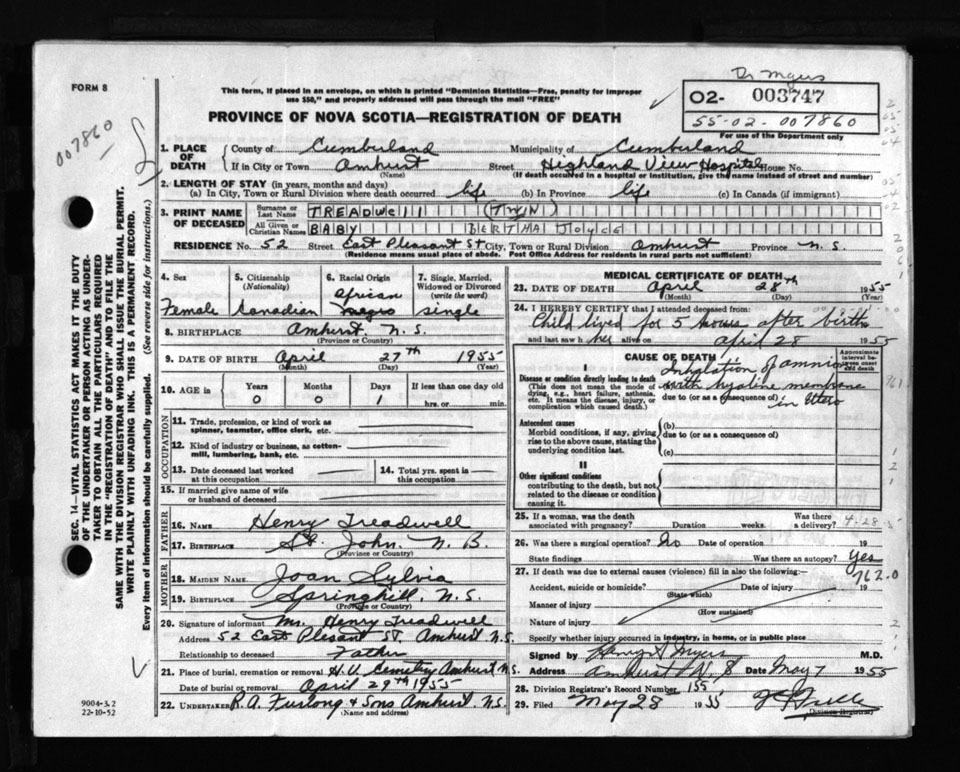 Dr Myers
FORM 8
This form, if placed in an envelope, on which is printed "Dominion Statistics—Free, penalty for improper use $50," and properly addressed will pass through the mail "FREE"
02- 003747
55-02-007860
For use of the Department only
PROVINCE OF NOVA SCOTIA—REGISTRATION OF DEATH
007860
1. PLACE OF DEATH
County of Cumberland Municipality of Cumberland
If in City or Town Amherst Street Highland View Hospital House No.
(Name) (If death occurred in a hospital or institution, give the name instead of street and number)
2. LENGTH OF STAY (in years, months and days)
(a) In City, Town or Rural Division where death occurred life (b) In Province life (c) In Canada (if immigrant)
3. PRINT NAME OF DECEASED
Surname or Last Name TREADWELL (TWIN)
All Given or Christian Names BABY BERTHA JOYCE
RESIDENCE No. 52 Street East Pleasant St City, Town or Rural Division Amherst Province N.S.
(Residence means usual place of abode. Post Office Address for residents in rural parts not sufficient)
4. Sex Female
5. Citizenship (Nationality) Canadian
6. Racial Origin African negro
7. Single, Married, Widowed or Divorced (write the word) single
8. BIRTHPLACE Amherst. N.S.
(Province or Country)
9. DATE OF BIRTH April 27th 1955
(Month) (Day) (Year)
10. AGE in Years Months Days If less than one day old
0 0 1 hrs. or min.
OCCUPATION
11. Trade, profession, or kind of work as spinner, teamster, office clerk, etc.
12. Kind of industry or business, as cotton-mill, lumbering, bank, etc.
13. Date deceased last worked at this occupation
14. Total yrs. spent in this occupation
15. If married give name of wife or husband of deceased
FATHER
16. NAME Henry Treadwell
17. BIRTHPLACE St. John. N.B.
(Province or Country)
MOTHER
18. MAIDEN NAME Joan Sylvia
19. BIRTHPLACE Springhill, N.S.
(Province or Country)
20. Signature of informant Mr. Henry Treadwell
Address 52 East Plesant ST. Amherst N.S.
Relationship to deceased Father
21. Place of burial, cremation or removal H.V. Cemetery Amherst N.S.
Date of burial or removal April 29th 1955
22. UNDERTAKER R.A. Furlong & Sons Amherst. N.S.
(Name and address)
MEDICAL CERTIFICATE OF DEATH
23. DATE OF DEATH April 28th 1955
(Month) (Day) (Year)
24. I HEREBY CERTIFY that I attended deceased from:
Child lived for 5 hours after birth
and last saw her alive on april 28 1955
CAUSE OF DEATH
Approximate interval between onset and death
I
Disease or condition directly leading to death
(This does not mean the mode of dying, e.g., heart failure, asthenia. It means the disease, injury, or complication which caused death.)
Inhalation of amnion
with hyaline membrane
due to (or as a consequence of) in Utero
761
Antecedent causes
Morbid conditions, if any, giving rise to the above cause, stating the underlying condition last.
(b)
due to (or as a consequence of)
(c)
II
Other significant conditions
contributing to the death, but not related to the disease or condition causing it.
25. If a woman, was the death associated with pregnancy? Duration weeks. Was there a delivery? 4-28-5
26. Was there a surgical operation? No Date of operation 19
State findings Was there an autopsy? Yes
762.0
27. If death was due to external causes (violence) fill in also the following:
Accident, suicide or homicide? Date of injury 19
(State which)
Manner of injury
(How sustained)
Nature of injury
Specify whether injury occurred in industry, in home, or in public place
Signed by Henry S Myers M.D.
Address Amherst N.S Date May 7 1955
28. Division Registrar's Record Number 155
29. Filed May 28 1955
Division Registrar
9004-3.2
22-10-52
SEC. 14—VITAL STATISTICS ACT MAKES IT THE DUTY
OF THE UNDERTAKER OR PERSON ACTING AS UNDER-
TAKER TO OBTAIN ALL THE PARTICULARS REQUIRED
IN THE "REGISTRATION OF DEATH" AND TO FILE THE
SAME WITH THE DIVISION REGISTRAR WHO SHALL ISSUE THE BURIAL PERMIT.
WRITE PLAINLY WITH UNFADING INK. THIS IS A PERMANENT RECORD.
Every item of information should be carefully supplied. (See reverse side for instructions.)